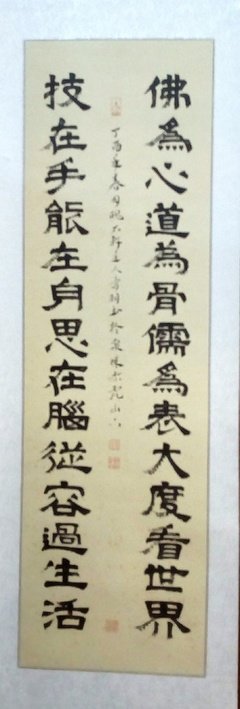 佛為心道為骨儒為表大度看世界
技在手能在身思在腦從容過生活
丁酉年春月